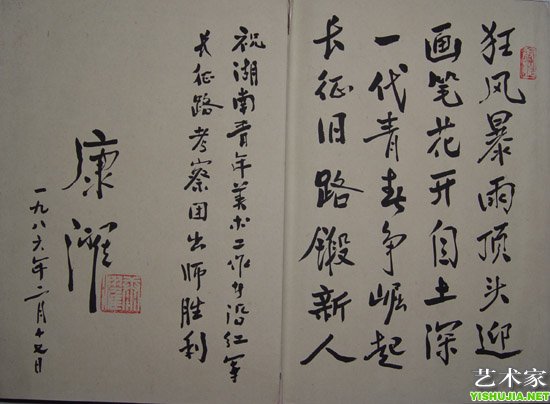 狂风暴雨顶头迎
画笔花开自土深
一代青春争崛起
长征旧路锻新人
祝湖南青年美术工作者沿红军
长征路考察团出师胜利
康濯
一九八六年二月十日
艺术家
YISHUJIA.NET